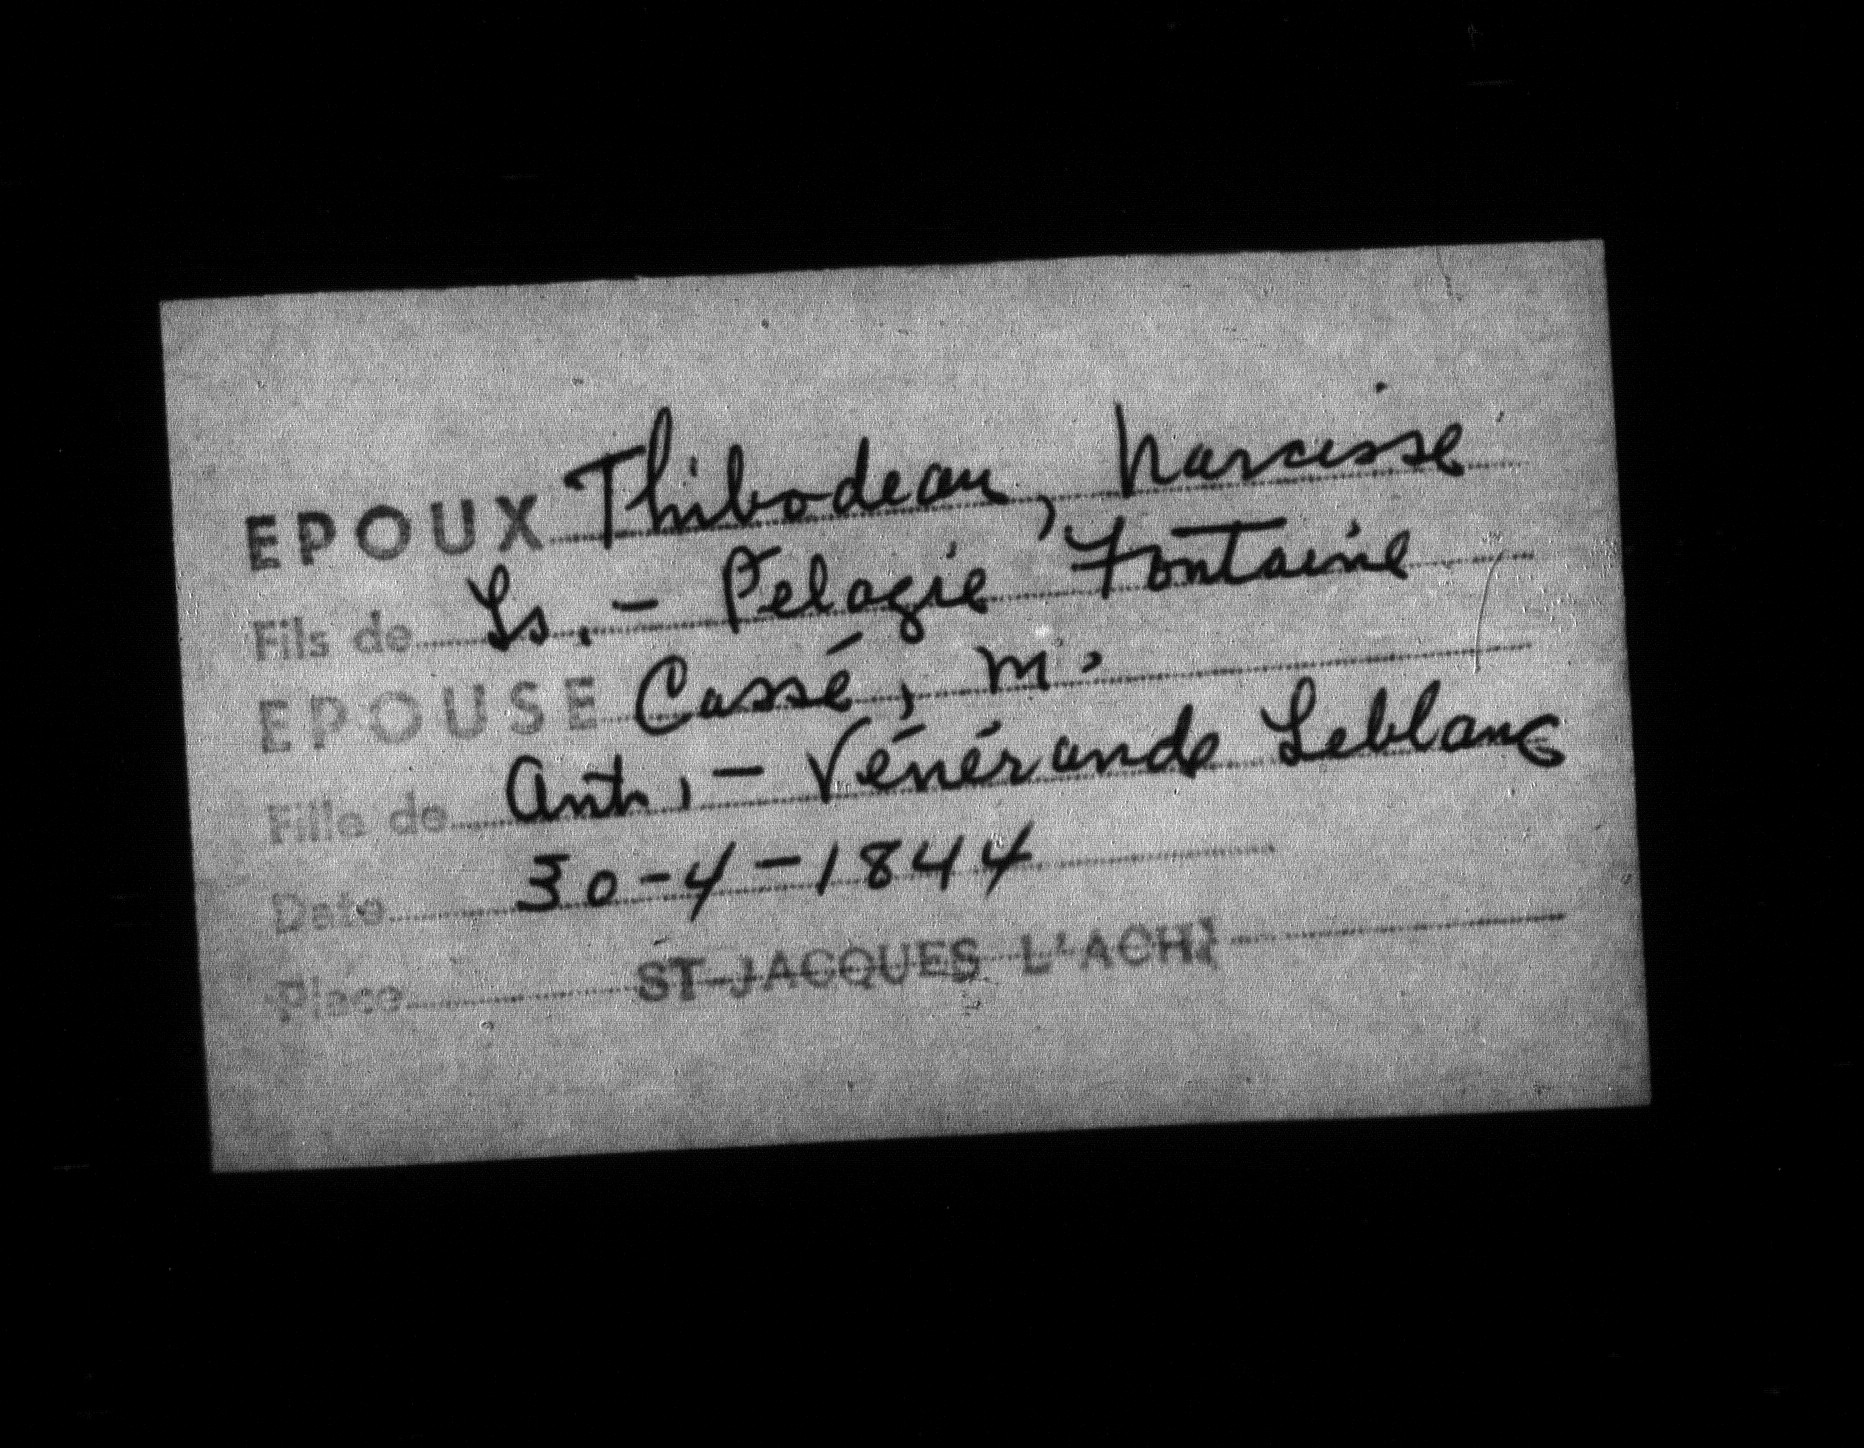 EPOUX Thibodeau, Narcisse
Fils de Ls. - Pelagie Fontaine
EPOUSE Cassé, M.
Fille de Ant. - Vénérande Leblanc
Date 30-4-1844
Place ST-JACQUES L'ACHI